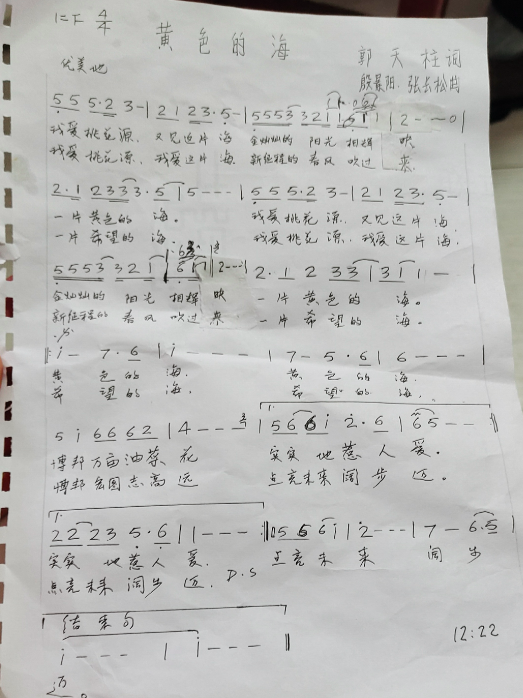 1=F 4/4 黄色的海
郭天柱词
优美地 殷景阳、张长松曲
5 5 5·2 3 - | 2 1 2 3·5 - | 5 5 5 3 3 2 1 | 6 1 | 2 - - 0 |
我爱桃花源，又见这片海 金灿灿的 阳光 相辉 映
我爱桃花源，我爱这片海 新征程的 春风 吹过 来
2·1 2 3 3 3·5 | 5 - - - | 5 5 5·2 3 - | 2 1 2 3·5 - |
一片黄色的 海。 我爱桃花源，又见这片海
一片希望的 海 我爱桃花源，我爱这片海
5 5 5 3 3 2 1 | 6 1 | 2 - - - | 2·1 2 3 3 | 3 1 1 - - |
金灿灿的 阳光 相辉 映 一片黄色的 海。
新征程的 春风 吹过 来 一片希望的 海。
i - 7·6 | i - - - | 7 - 5·6 | 6 - - - |
黄 色的 海. 黄 色的 海.
希 望的 海. 希 望的 海.
5 i 6 6 6 2 | 4 - - - | 5 6 6 i 2·6 | 6 5 - - |
博邦万亩油菜 花 实实 地惹人 爱.
博邦宏图志高 远 点亮未来阔步 迈.
1.
2 2 2 3 5·6 | 1 - - - :‖ 5 5 6 i | 2 - - - | 7 - 6·5 |
实实 地惹人 爱. 点亮未 来 阔 步
点亮未来 阔步 迈. D.S
结束句
i - - - | i - - - ‖
迈。
12:22